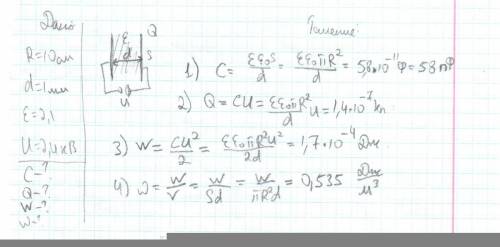 Дано
R=10см
d=1мм
ε=2,1
U=2,4кВ
C-?
Q-?
W-?
w-?
ε Q
d S
U
Решение:
1) C = εε₀S/d = εε₀πR²/d = 5,8·10⁻¹¹Ф = 58 пФ
2) Q = CU = εε₀πR²/d U = 1,4·10⁻⁷ Кл
3) W = CU²/2 = εε₀πR²U²/2d = 1,7·10⁻⁴ Дж
4) w = W/V = W/Sd = W/πR²d = 0,535 Дж/м³